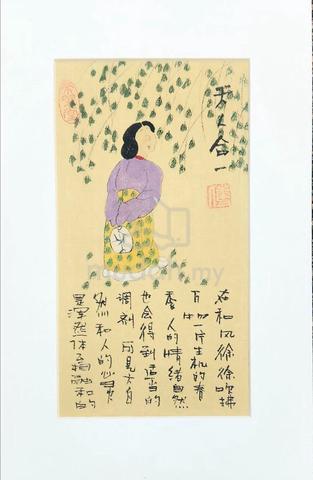 天人合一
在和风徐徐吹拂
下如一片生机的春
季人的情绪自然
也会得到适当的
调剂 可见大自
然和人的心灵
是浑然一体
mudah.my